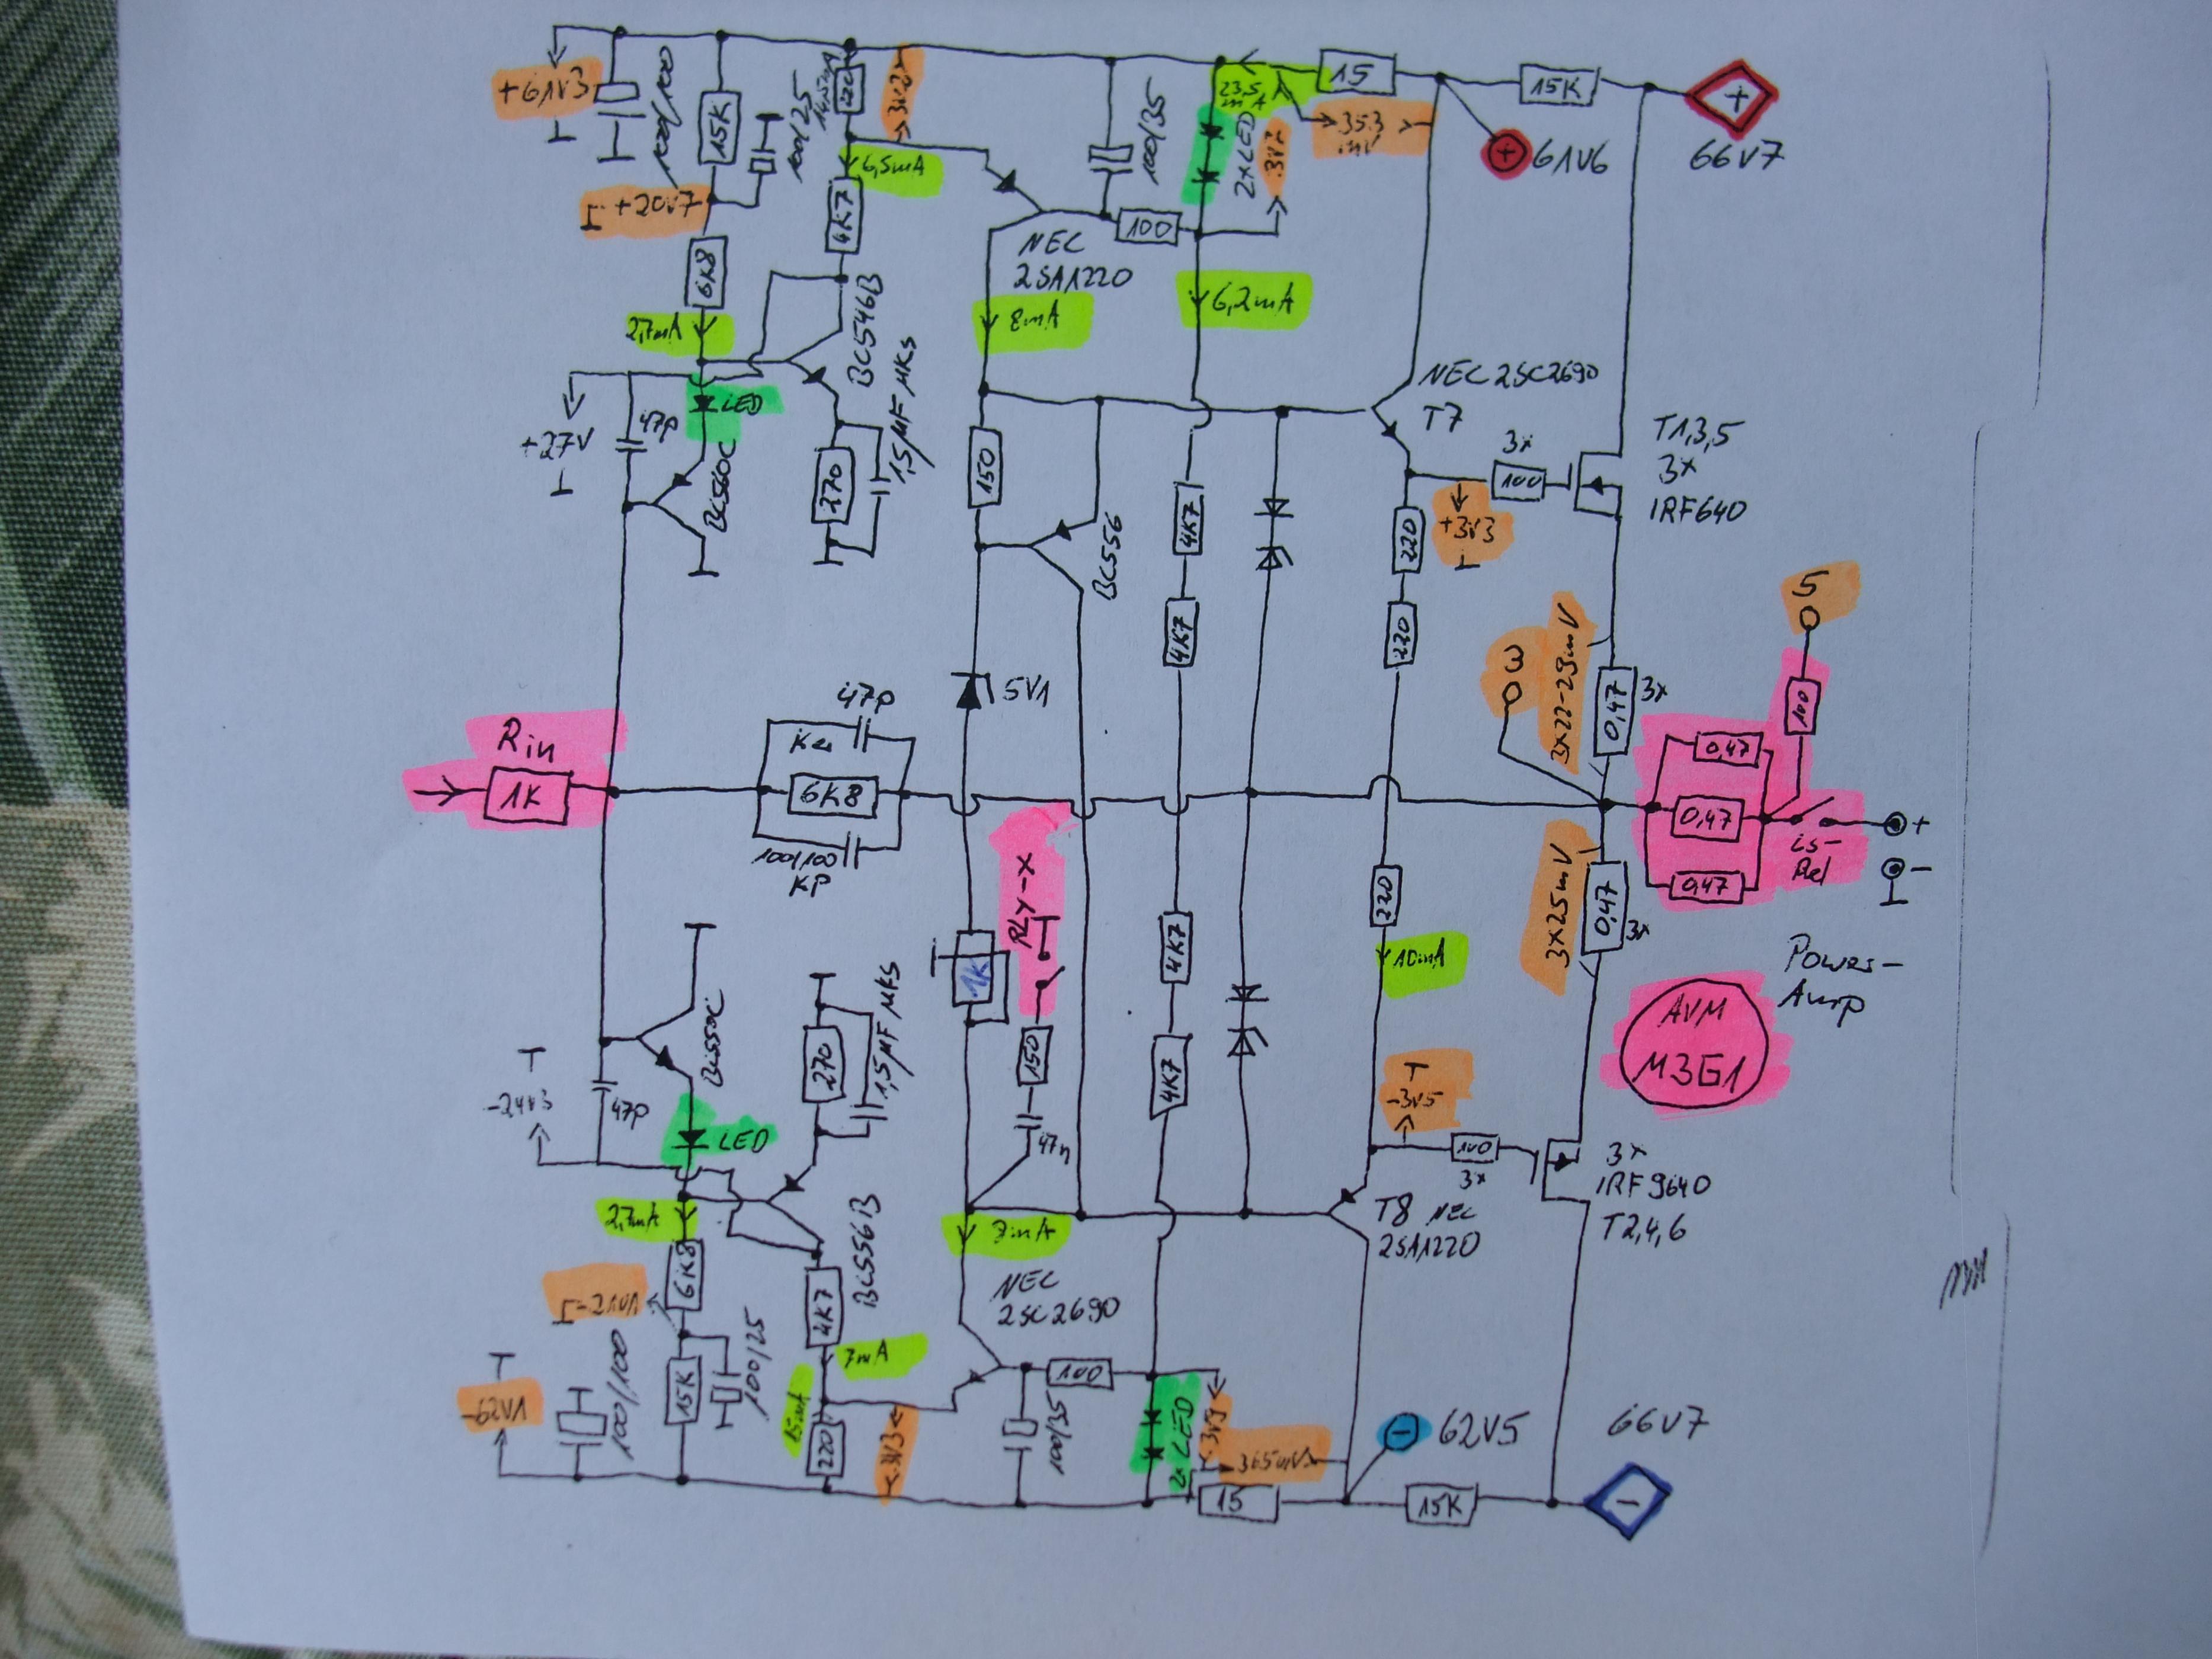 +61V3
100/100
15K
100/25
14,5mA
220
3V2
6,5mA
+20V7
4K7
6K8
2,7mA
BC546B
+27V
47p
LED
BC560C
270
1,5µF MKS
100/35
NEC
2SA1220
100
8mA
23,5
mA
2x LED
3V2
353
mV
15
15K
+
61V6
66V7
6,2mA
150
BC556
5V1
4K7
4K7
NEC 2SC2690
T7
3x
100
+3V3
T1,3,5
3x
IRF640
220
220
3x22-23mV
ω
0,47
3x
5
100
0,47
0,47
0,47
LS-
Rel
+
-
Rin
1K
47p
Ke
6K8
100/100
KP
RLY-X
1K
150
47n
4K7
4K7
220
10mA
3x25mV
0,47
3x
Power-
Amp
AVM
M3G1
-3V5
100
3x
3x
IRF9640
T2,4,6
T8 NEC
2SA1220
BC550C
270
1,5µF MKS
-24V3
47p
LED
2,7mA
6K8
-21V1
BC556B
4K7
7mA
7mA
NEC
2SC2690
100
-62V1
100/100
15K
100/25
15mA
220
3V3
100/35
2x LED
3V3
365mV
15
-
62V5
15K
66V7
-